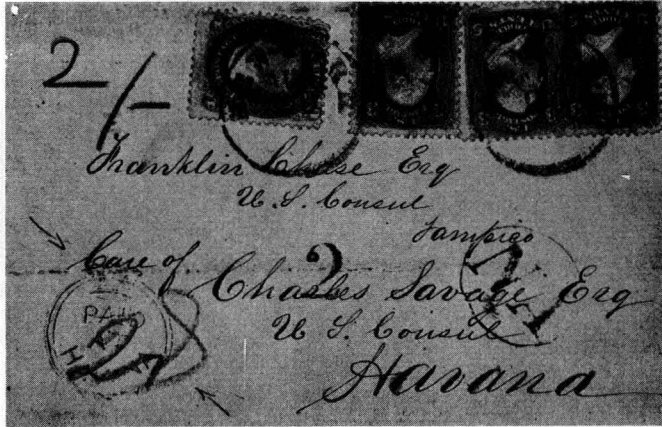 2/-
Franklin Chase Esq
U. S. Consul
Tampico
Care of
2
Charles Savage Esq
U S. Consul
Havana
PAID
2